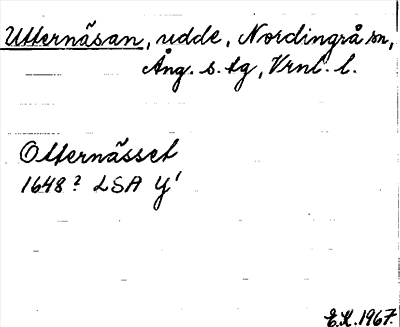 Utternäsan, udde, Nordingrå sn,
Ång. s. tg, Vrnl. l.
Otternässet
1648? LSA Y'
E.K. 1967.